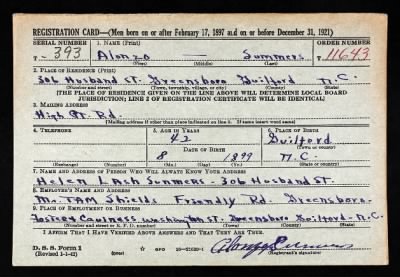 REGISTRATION CARD—(Men born on or after February 17, 1897 and on or before December 31, 1921)
SERIAL NUMBER 1. NAME (Print) ORDER NUMBER
T- 393 Alonzo Summers T 11643
(First) (Middle) (Last)
2. PLACE OF RESIDENCE (Print)
306 Husband ST. Greensboro Guilford N.C.
(Number and street) (Town, township, village, or city) (County) (State)
[THE PLACE OF RESIDENCE GIVEN ON THE LINE ABOVE WILL DETERMINE LOCAL BOARD
JURISDICTION; LINE 2 OF REGISTRATION CERTIFICATE WILL BE IDENTICAL]
3. MAILING ADDRESS
High Rd.
(Mailing address if other than place indicated on line 2. If same insert word same)
4. TELEPHONE 5. AGE IN YEARS 6. PLACE OF BIRTH
42 Guilford
DATE OF BIRTH (Town or county)
8 1899 N.C.
(Exchange) (Number) (Mo.) (Day) (Yr.) (State or country)
7. NAME AND ADDRESS OF PERSON WHO WILL ALWAYS KNOW YOUR ADDRESS
Helen Summers - 306 Husband ST.
8. EMPLOYER'S NAME AND ADDRESS
Mr. Shields Friendly Rd. Greensboro.
9. PLACE OF EMPLOYMENT OR BUSINESS
Washington ST. Greensboro Guilford - N.C.
(Number and street or R. F. D. number) (Town) (County) (State)
I AFFIRM THAT I HAVE VERIFIED ABOVE ANSWERS AND THAT THEY ARE TRUE.
D. S. S. Form 1
(Revised 1-1-42) (over) GPO 16—21630-1 Alonzo Summers
(Registrant's signature)